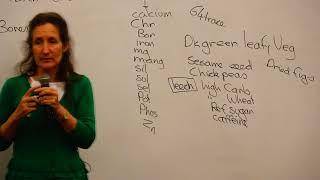 Bones
calcium
Chr
Bor
iron
mg
mang
sil
sol
sel
Pot
Phos
Zn
64 trace
Dk green leafy Veg
Sesame seed Dried figs
Chick peas
leech high Carb
" Wheat
Ref Sugar
caffeine